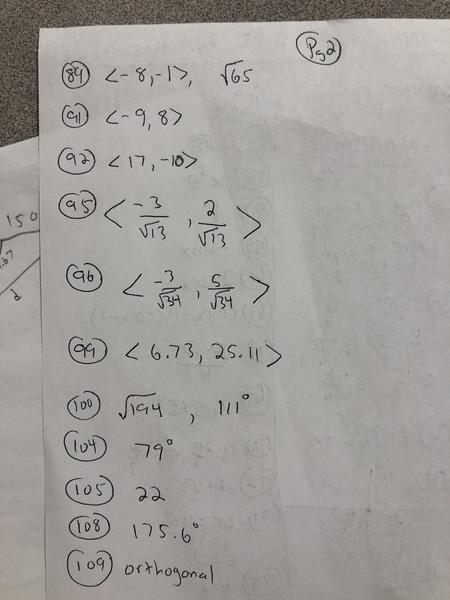 Pg2
89 <-8,-1>, √65
91 <-9,8>
92 <17,-10>
95 <-3/√13, 2/√13>
96 <-3/√34, 5/√34>
99 <6.73, 25.11>
100 √194, 111°
104 79°
105 22
108 175.6°
109 orthogonal
150